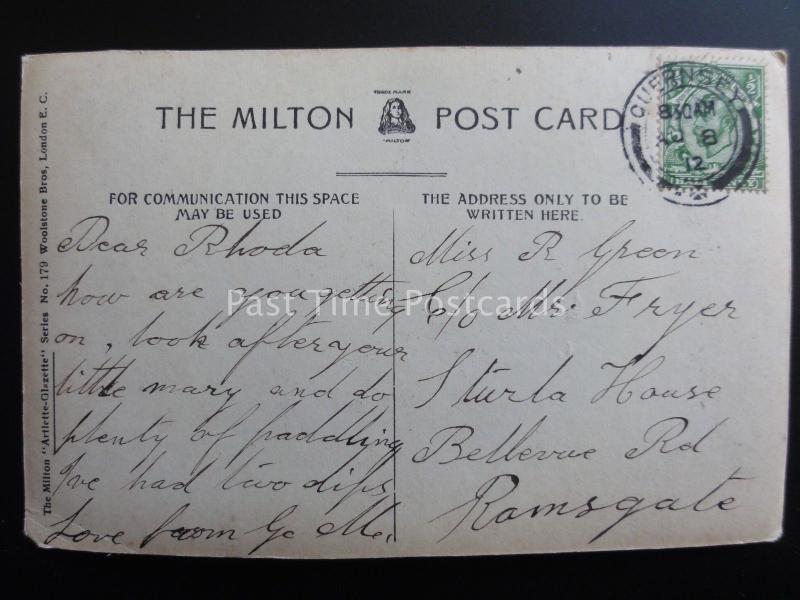 TRADE MARK
THE MILTON POST CARD
"MILTON"
GUERNSEY
8.30AM
AU 8
12
½
FOR COMMUNICATION THIS SPACE
MAY BE USED
THE ADDRESS ONLY TO BE
WRITTEN HERE.
The Milton "Artlette-Glazette" Series No. 179 Woolstone Bros, London E. C.
Dear Rhoda
how are you getting
on, look after your
little mary and do
plenty of paddling
I've had two dips
Love from
Miss R Green
C/o Mr. Fryer
Sturla House
Bellevue Rd
Ramsgate
Past Time Postcards